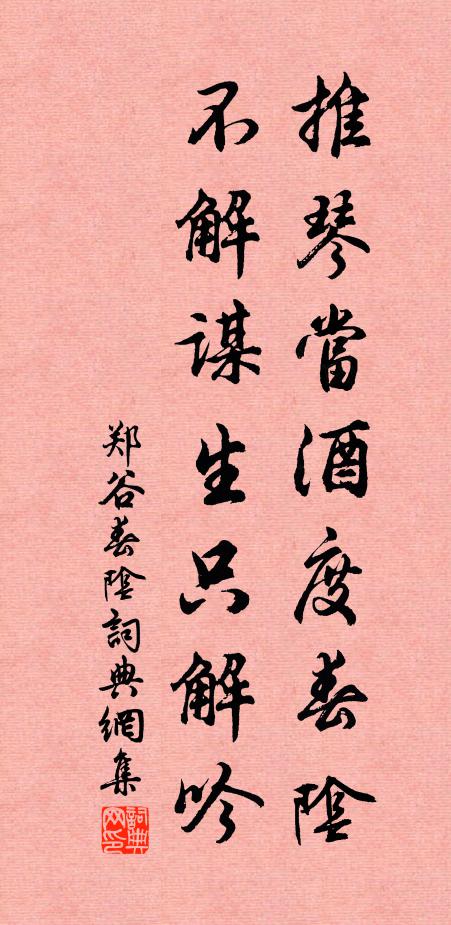 推琴當酒度春陰
不解謀生只解吟
郑谷春陰詞典網集
詞典网印